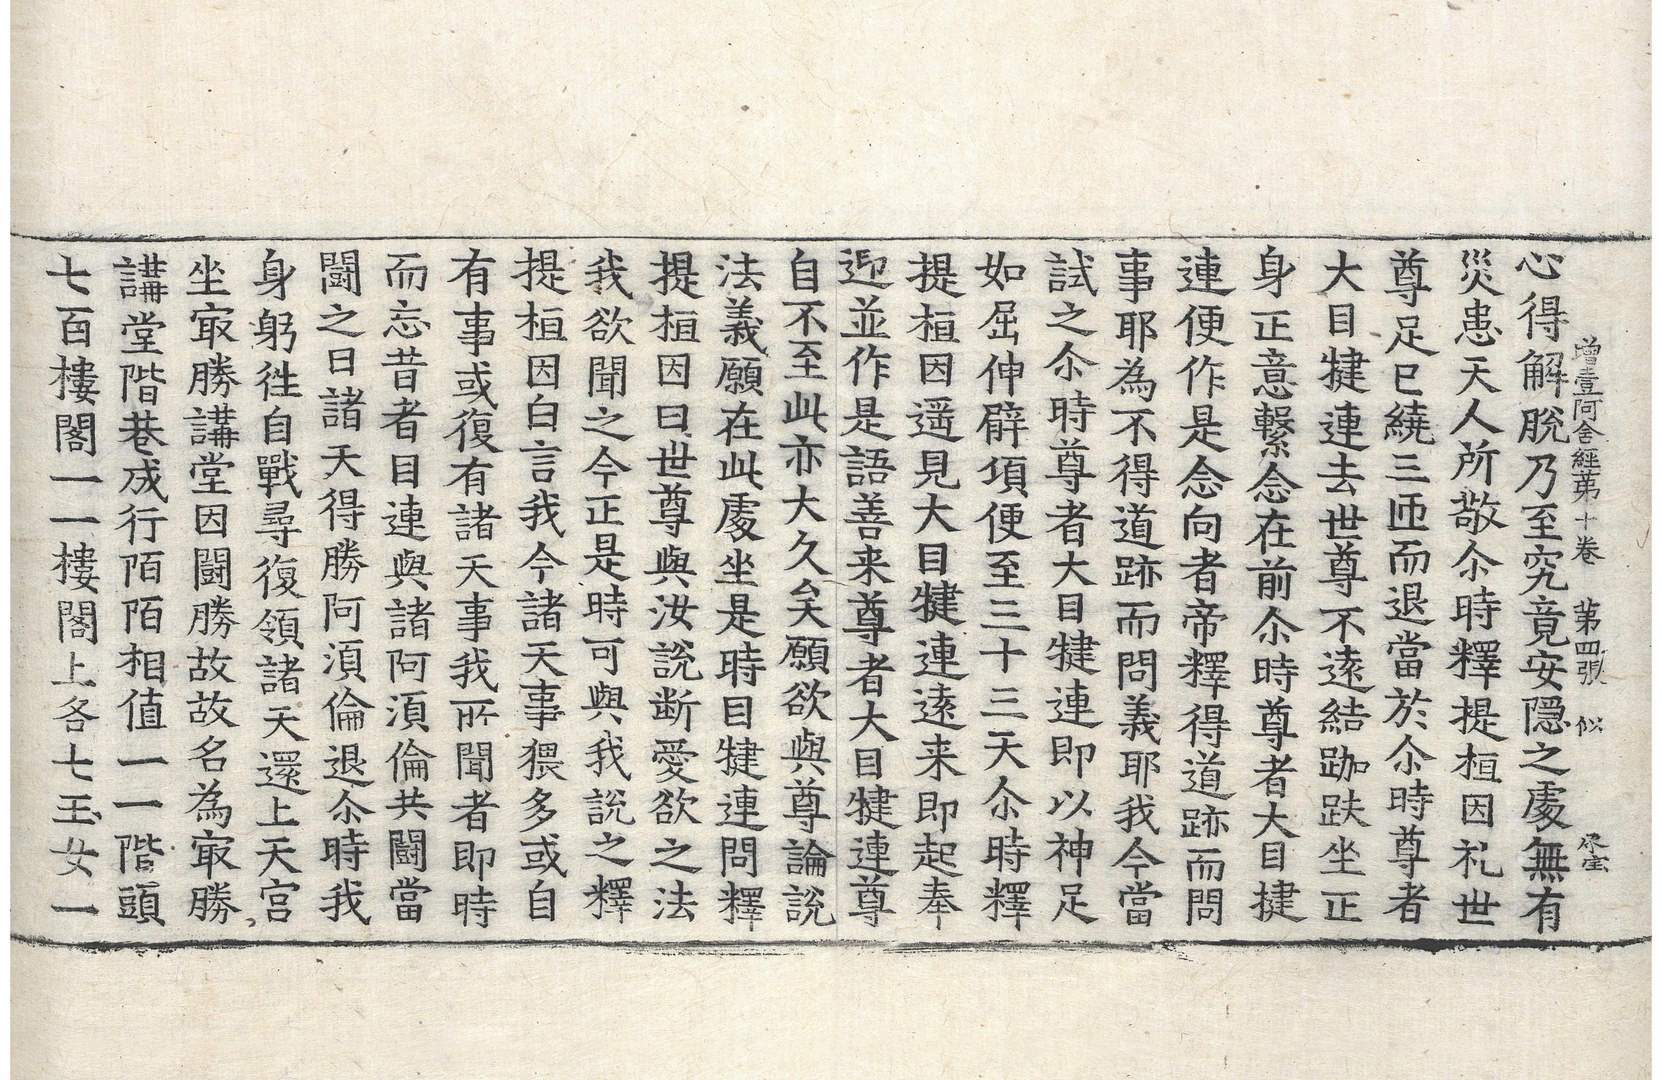 增壹阿含經第十卷 第四張 似 永宝
心得解脫乃至究竟安隱之處無有
災患天人所敬尒時釋提桓因礼世
尊足已繞三匝而退當於尒時尊者
大目犍連去世尊不遠結跏趺坐正
身正意繫念在前尒時尊者大目揵
連便作是念向者帝釋得道跡而問
事耶為不得道跡而問義耶我今當
試之尒時尊者大目犍連即以神足
如屈伸臂項便至三十三天尒時釋
提桓因遥見大目犍連遠来即起奉
迎並作是語善来尊者大目犍連尊
自不至此亦大久矣願欲與尊論說
法義願在此處坐是時目犍連問釋
提桓因曰世尊與汝說断愛欲之法
我欲聞之今正是時可與我說之釋
提桓因白言我今諸天事猥多或自
有事或復有諸天事我所聞者即時
而忘昔者目連與諸阿湏倫共鬪當
鬪之日諸天得勝阿湏倫退尒時我
身躬徃自戰尋復領諸天還上天宮
坐冣勝講堂因鬪勝故故名為冣勝
講堂階巷成行陌陌相值一一階頭
七百樓閣一一樓閣上各七玉女一